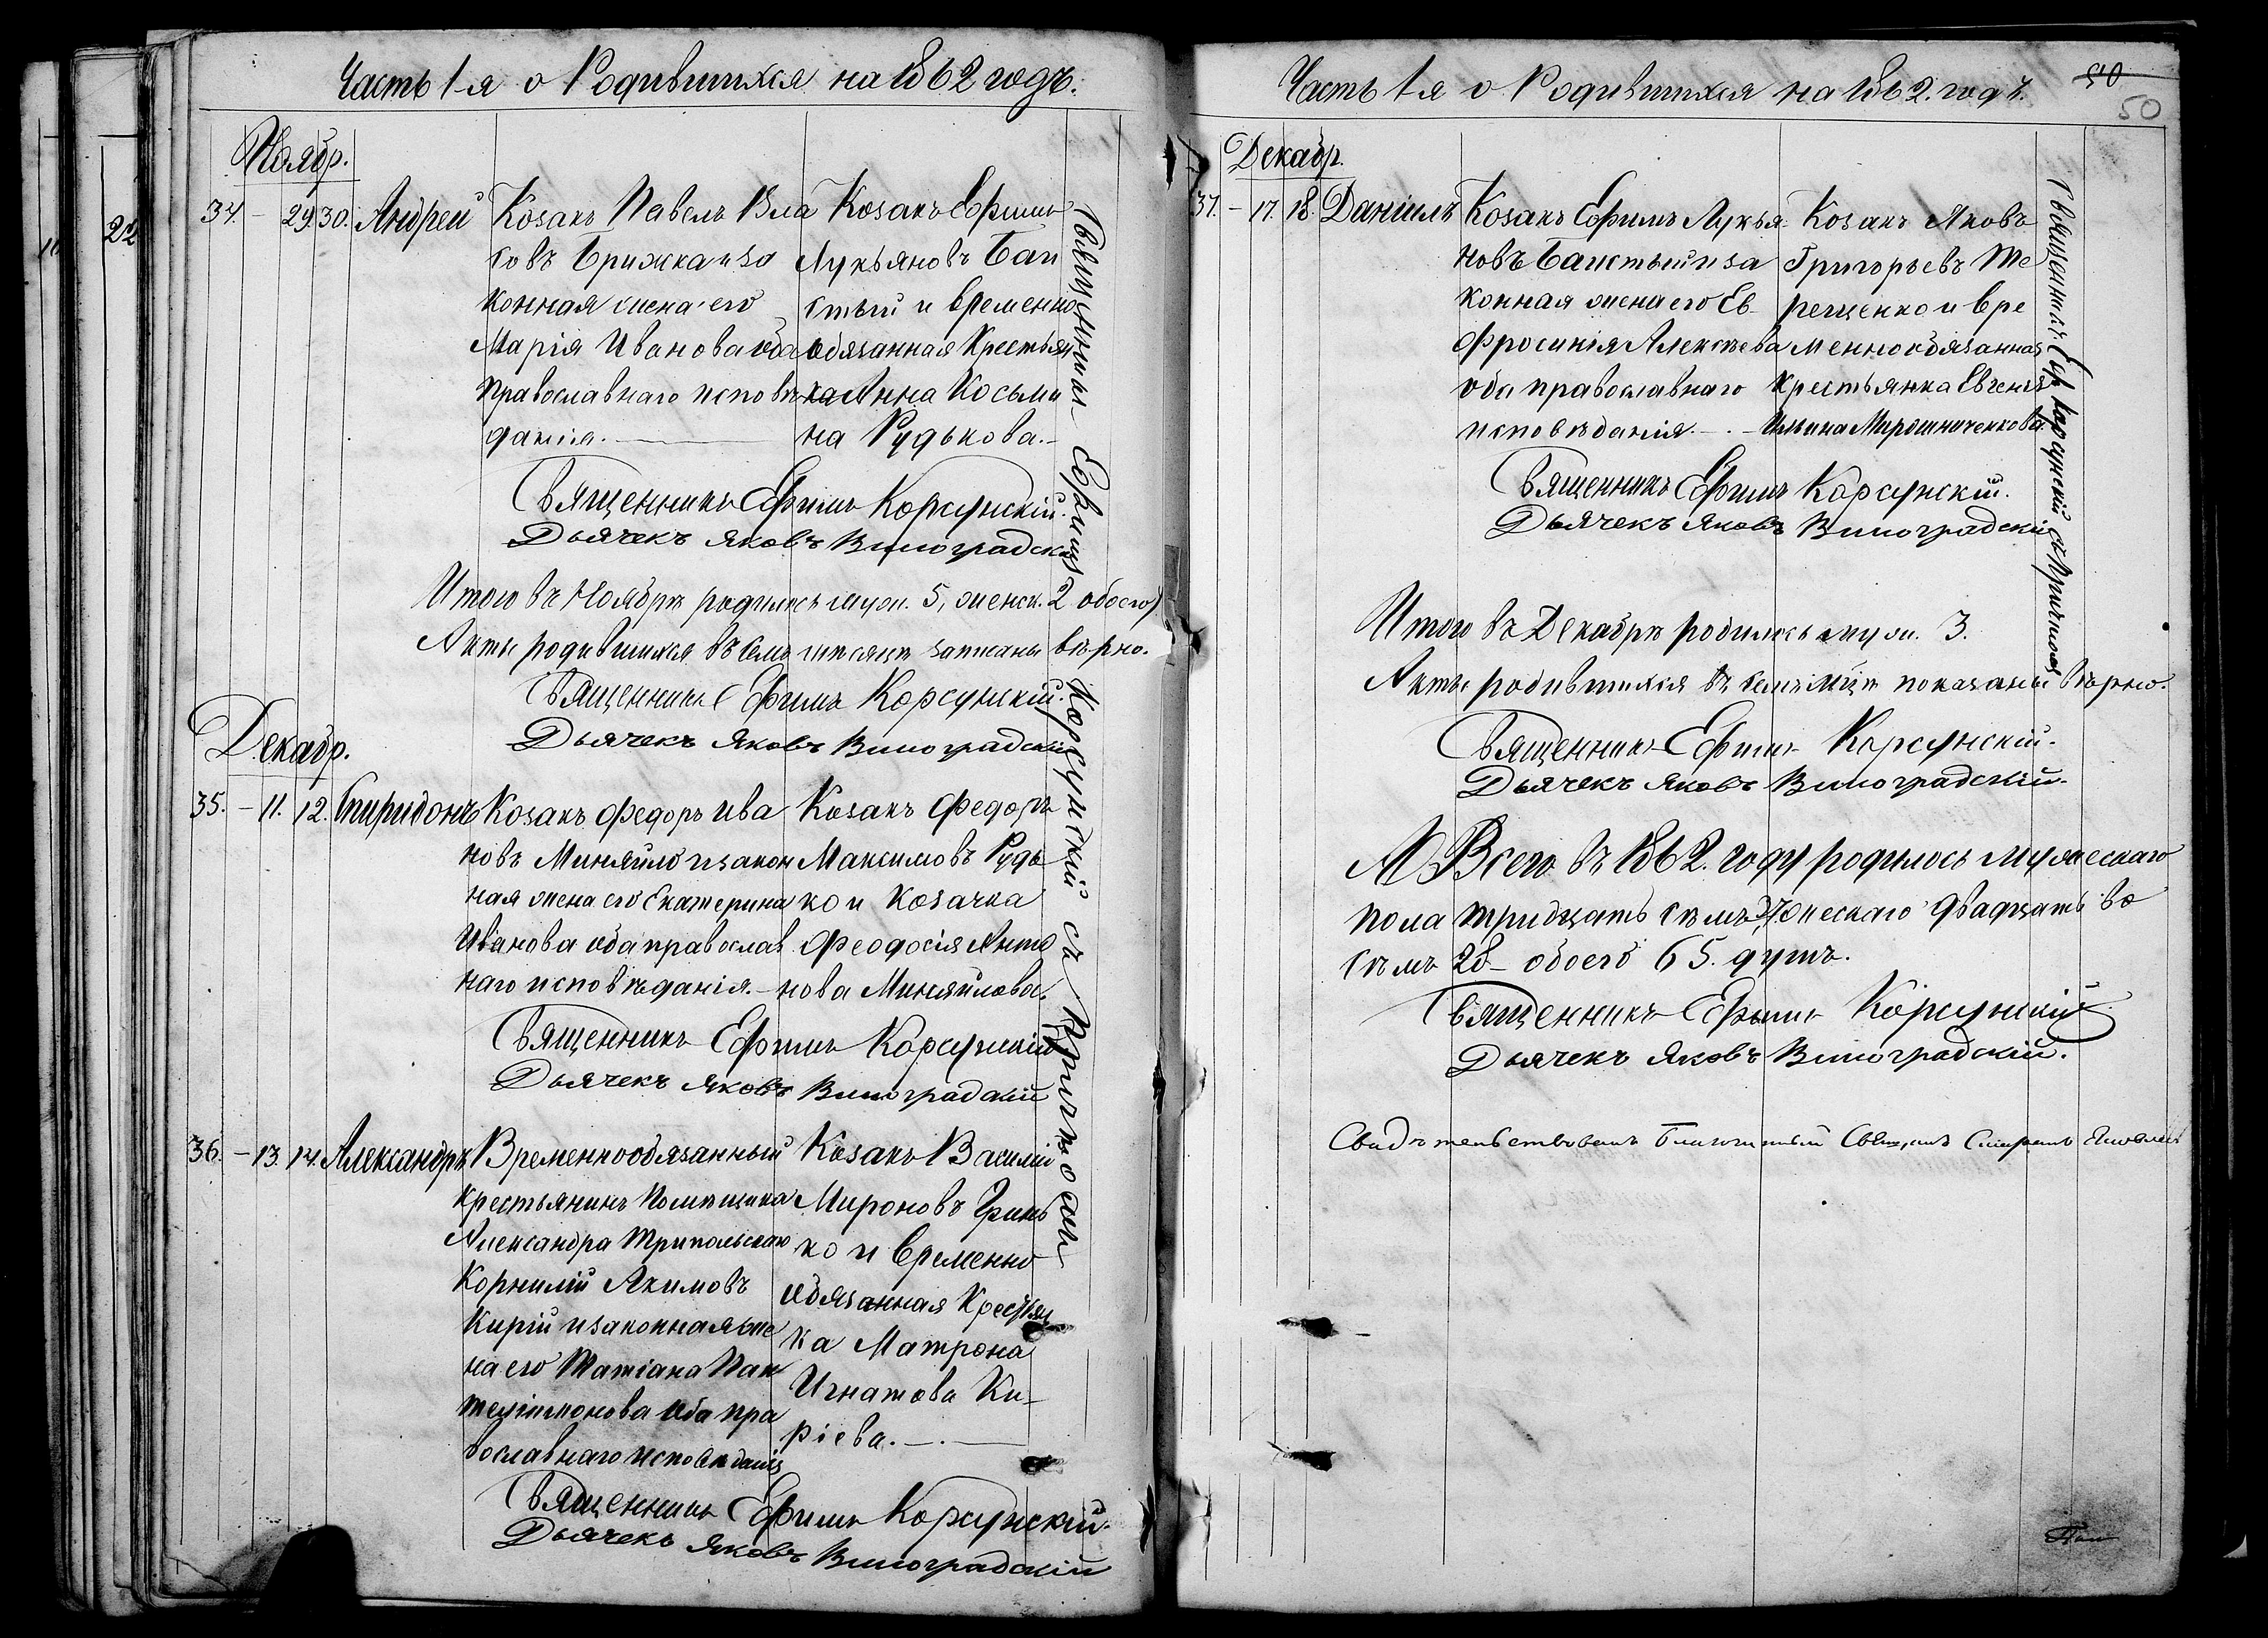 Часть 1-я о Родившихся на 1862 годъ.
Ноябр.
34. - 29. 30. Андрей
Козакъ Павелъ Вла
совъ Брижка и за
конная жена его
Марія Иванова оба
православнаго исповѣ
данія.
Козакъ Ефимъ
Лукьяновъ Баи
стый и временно
обязанная Крестьян
ка Анна Косьми
на Рудькова.
Священникъ Ефимъ Корсунскій.
Дьячекъ Яковъ Виноградскій
Итого въ Ноябрѣ родилось муж. 5, женск. 2 обоего 7
Акты родившихся въ семъ мѣсяцѣ записаны вѣрно.
Священникъ Ефимъ Корсунскій.
Дьячекъ Яковъ Виноградскій
Декабр.
35. - 11. 12. Спиридонъ
Козакъ Федоръ Ива
новъ Миняйло и закон
ная жена его Екатерина
Иванова оба православ
наго исповѣданія.
Козакъ Федоръ
Максимовъ Рудь
ко и Козачка
Феодосія Анто
нова Миняйлова.
Священникъ Ефимъ Корсунскій
Дьячекъ Яковъ Виноградскій
36. - 13. 14. Александръ
Временнообязанный
крестьянинъ Помѣщика
Александра Трипольскаго
Корнилій Якимовъ
Кирій и законная же
на его Татіана Пан
телііmонова оба пра
вославнаго исповѣданія
Козакъ Василій
Мироновъ Гринь
ко и временно
обязанная Крестьян
ка Матрона
Игнатова Ки-
ріева.
Священникъ Ефимъ Корсунскій.
Дьячекъ Яковъ Виноградскій
Священникъ Ефимъ Корсунскій съ Причтомъ
Часть 1я о Родившихся на 1862. годъ.
50
50
Декабр.
37. - 17. 18. Даніилъ
Козакъ Ефимъ Лукья-
новъ Баистый и за
конная жена его Ев-
фросинія Алексѣева
оба православнаго
исповѣданія.
Козакъ Яковъ
Григорьевъ Те
рещенко и вре
менно обязанная
крестьянка Евгенія
Ильина Мирошниченкова.
Священникъ Ефимъ Корсунскій.
Дьячекъ Яковъ Виноградскій
Итого въ Декабрѣ родилось муж. 3.
Акты родившихся въ семъ мцѣ показаны вѣрно.
Священникъ Ефимъ Корсунскій.
Дьячекъ Яковъ Виноградскій.
А Всего въ 1862. году родилось мужескаго
пола тридцать семъ 37. женескаго двадцать во
семъ 28 - обоего 65. душъ.
Священникъ Ефимъ Корсунскій
Дьячекъ Яковъ Виноградскій.
Священникъ Еф. Корсунскій съ Причтомъ
Свидѣтельствовалъ Благочинный Священ.